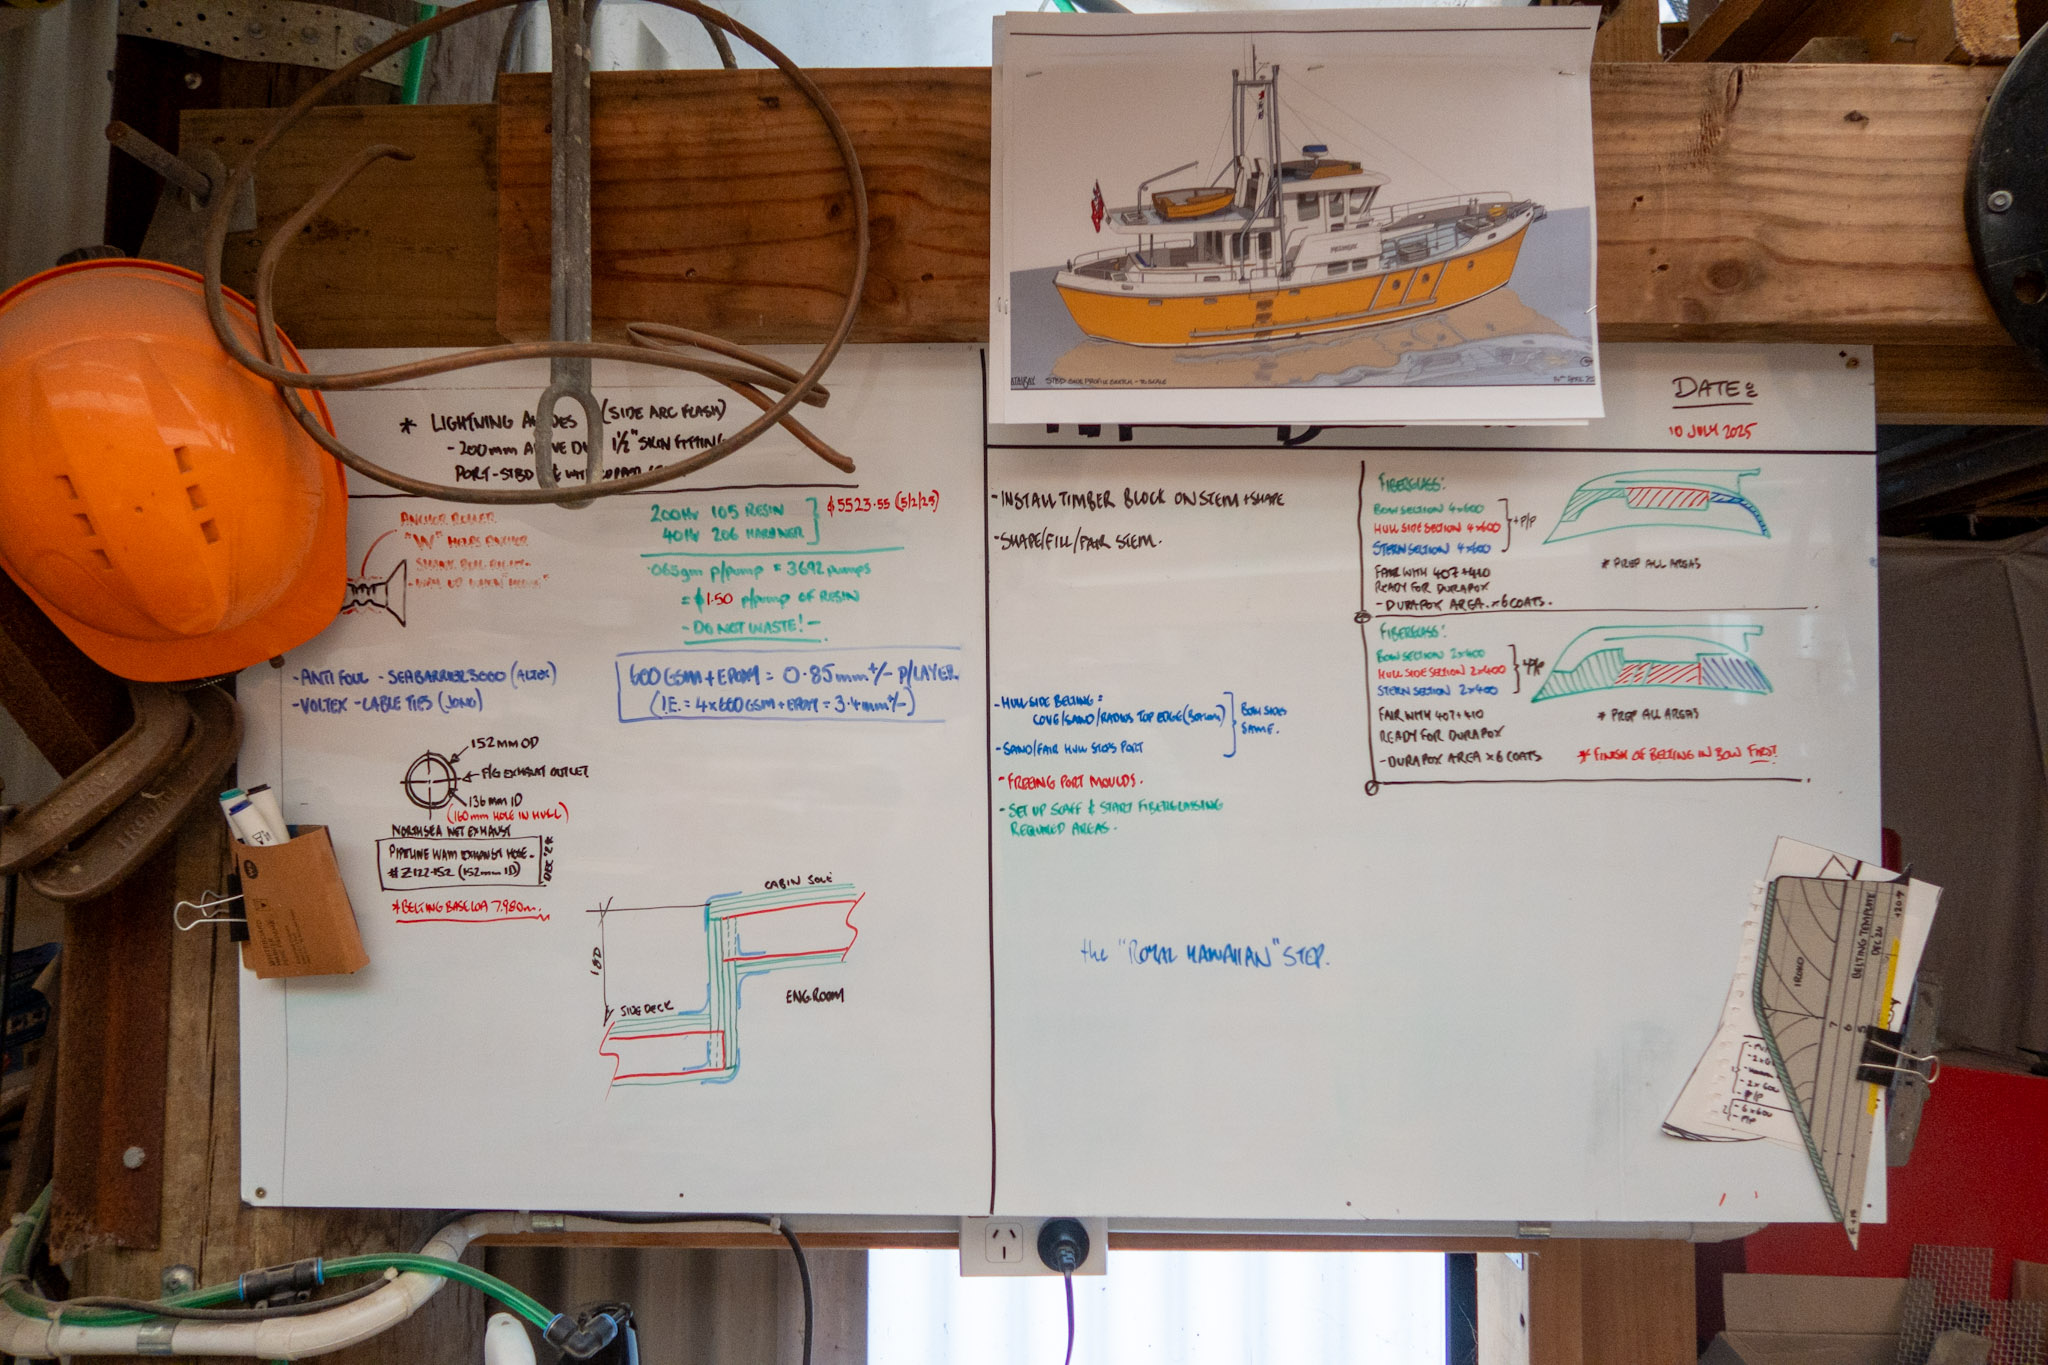 STBD SIDE PROFILE SKETCH - TO SCALE
* LIGHTNING (SIDE ARC FLASH)
- 200mm 1½" SKIN FITTING
PORT-STBD
DATE:
10 JULY 2025
ANCHOR ROLLER
"W" HOLDS ANCHOR
200Hv 105 RESIN
40Hv 206 HARDNER
$5523.55 (5/2/25)
.065gm p/pump = 3692 pumps
= $1.50 p/pump OF RESIN
- DO NOT WASTE! -
- ANTI FOUL - SEABARRIER 3000 (ALTEX)
- VOLTEX - CABLE TIES (JONO)
600GSM + EPOXY = 0.85mm +/- P/LAYER.
(I.E. = 4x600GSM + EPOXY = 3.4mm +/-)
152mm OD
F/G EXHAUST OUTLET
136mm ID
(160mm HOLE IN HULL)
NORTHSEA WET EXHAUST
PIPELINE WAM EXHAUST HOSE -
#Z122-152 (152mm ID)
DEC '24
* BELTING BASE LOA 7.980m.
CABIN SOLE
180
ENG ROOM
SIDE DECK
- INSTALL TIMBER BLOCK ON STEM + SHAPE
- SHAPE/FILL/FAIR STEM.
- HULL SIDE BELTING =
COVE/SAND/RADIUS TOP EDGE (BOTTOM)
- SAND/FAIR HULL SIDES PORT
BOW SIDES
SAME.
- FREEING PORT MOULDS.
- SET UP SCAFF & START FIBERGLASSING
REQUIRED AREAS.
the "ROYAL HAWAIIAN" STEP.
FIBERGLASS:
BOW SECTION 4x600
HULL SIDE SECTION 4x600
STERN SECTION 4x600
+P/P
FAIR WITH 407+410
READY FOR DURAPOX
- DURAPOX AREA x 6 COATS.
* PREP ALL AREAS
FIBERGLASS:
BOW SECTION 2x400
HULL SIDE SECTION 2x400
STERN SECTION 2x400
+P/P
FAIR WITH 407+410
READY FOR DURAPOX
- DURAPOX AREA x 6 COATS
* PREP ALL AREAS
* FINISH OF BELTING IN BOW FIRST!
IROKO
BELTING TEMPLATE
DEC '24
7
6
5
- 2x600
- P/P
- 6x600
- P/P